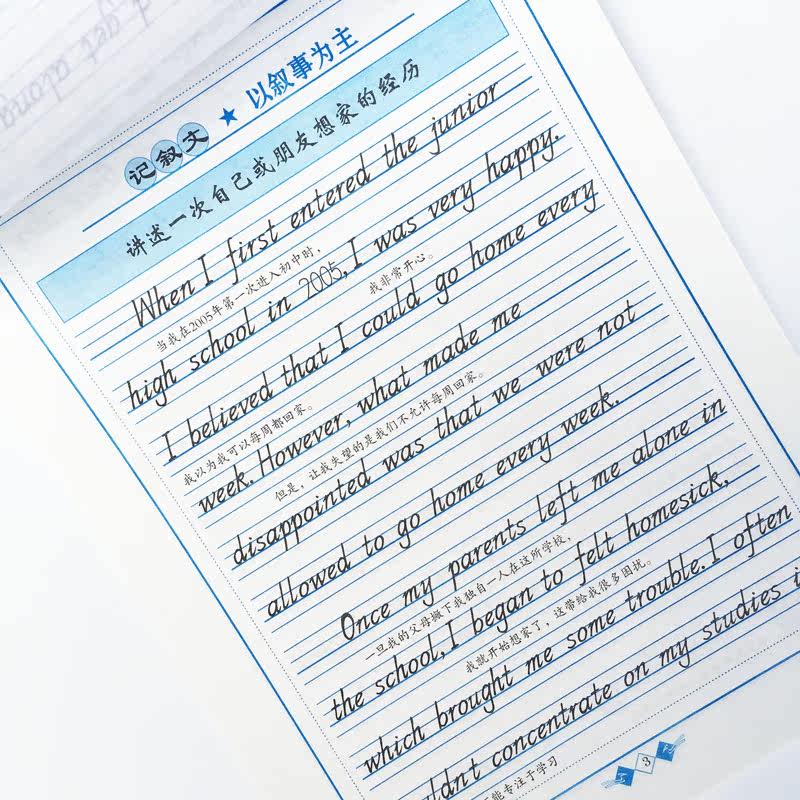 get along
记叙文 ★ 以叙事为主
讲述一次自己或朋友想家的经历
When I first entered the junior
当我在2005年第一次进入初中时，
high school in 2005, I was very happy.
我非常开心。
I believed that I could go home every
我以为我可以每周都回家。
week. However, what made me
但是，让我失望的是我们不允许每周回家。
disappointed was that we were not
allowed to go home every week.
Once my parents left me alone in
一旦我的父母撇下我独自一人在这所学校，
the school, I began to felt homesick,
我就开始想家了，这带给我很多困扰。
which brought me some trouble. I often
ldnt concentrate on my studies i
能专注于学习
3